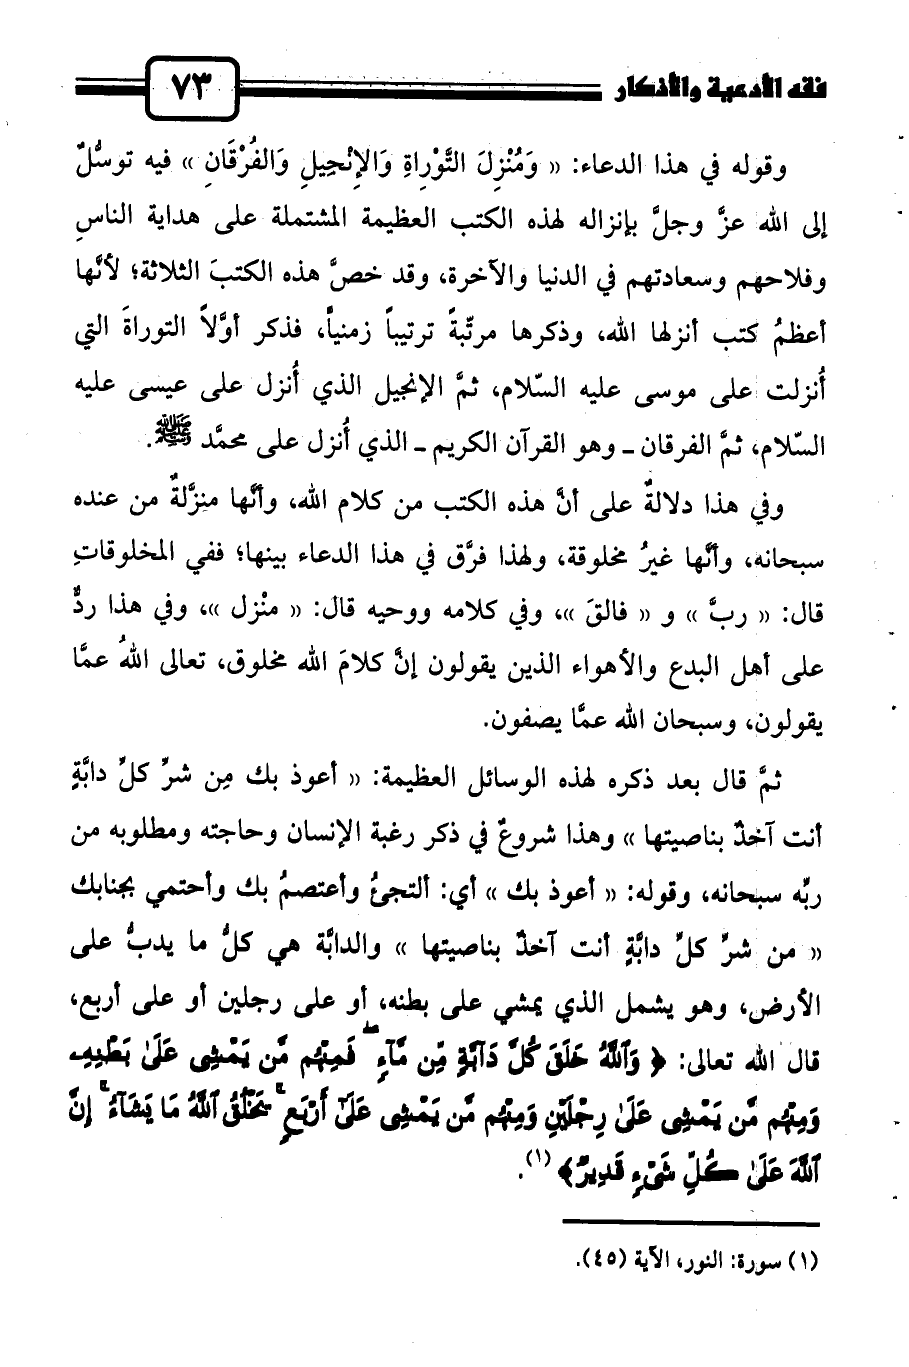 فقه الأدعية والأذكار
٧٣
وقوله في هذا الدعاء: « وَمُنْزِلَ التَّوْراةِ وَالإنْجيلِ وَالفُرْقَانِ » فيه توسُّلٌ
إلى الله عزَّ وجلَّ بإنزاله لهذه الكتب العظيمة المشتملة على هداية الناسِ
وفلاحهم وسعادتهم في الدنيا والآخرة، وقد خصَّ هذه الكتبَ الثلاثة؛ لأنَّها
أعظمُ كتب أنزلها الله، وذكرها مرتّبةً ترتيباً زمنياً، فذكر أوَّلاً التوراةَ التي
أُنزلت على موسى عليه السّلام، ثمَّ الإنجيل الذي أُنزل على عيسى عليه
السّلام، ثمَّ الفرقان ـ وهو القرآن الكريم ـ الذي أُنزل على محمَّد ﷺ.
وفي هذا دلالةٌ على أنَّ هذه الكتب من كلام الله، وأنَّها منزَّلةٌ من عنده
سبحانه، وأنَّها غيرُ مخلوقة، ولهذا فرَّق في هذا الدعاء بينها؛ ففي المخلوقاتِ
قال: « ربَّ » و « فالقَ »، وفي كلامه ووحيه قال: « منْزل »، وفي هذا ردٌّ
على أهل البدع والأهواء الذين يقولون إنَّ كلامَ الله مخلوق، تعالى اللهُ عمَّا
يقولون، وسبحان الله عمَّا يصفون.
ثمَّ قال بعد ذكره لهذه الوسائل العظيمة: « أعوذ بك مِن شرِّ كلِّ دابَّةٍ
أنت آخذٌ بناصيتها » وهذا شروعٌ في ذكر رغبة الإنسان وحاجته ومطلوبه من
ربِّه سبحانه، وقوله: « أعوذ بك » أي: ألتجئُ وأعتصمُ بك وأحتمي بجنابك
« من شرِّ كلِّ دابَّةٍ أنت آخذٌ بناصيتها » والدابَّة هي كلُّ ما يدبُّ على
الأرض، وهو يشمل الذي يمشي على بطنه، أو على رجلين أو على أربع،
قال الله تعالى: ﴿ وَٱللَّهُ خَلَقَ كُلَّ دَآبَّةٍ مِّن مَّآءٍ ۖ فَمِنْهُم مَّن يَمْشِى عَلَىٰ بَطْنِهِۦ
وَمِنْهُم مَّن يَمْشِى عَلَىٰ رِجْلَيْنِ وَمِنْهُم مَّن يَمْشِى عَلَىٰٓ أَرْبَعٍ ۚ يَخْلُقُ ٱللَّهُ مَا يَشَآءُ ۚ إِنَّ
ٱللَّهَ عَلَىٰ كُلِّ شَىْءٍ قَدِيرٌ﴾(١).
(١) سورة: النور، الآية (٤٥).